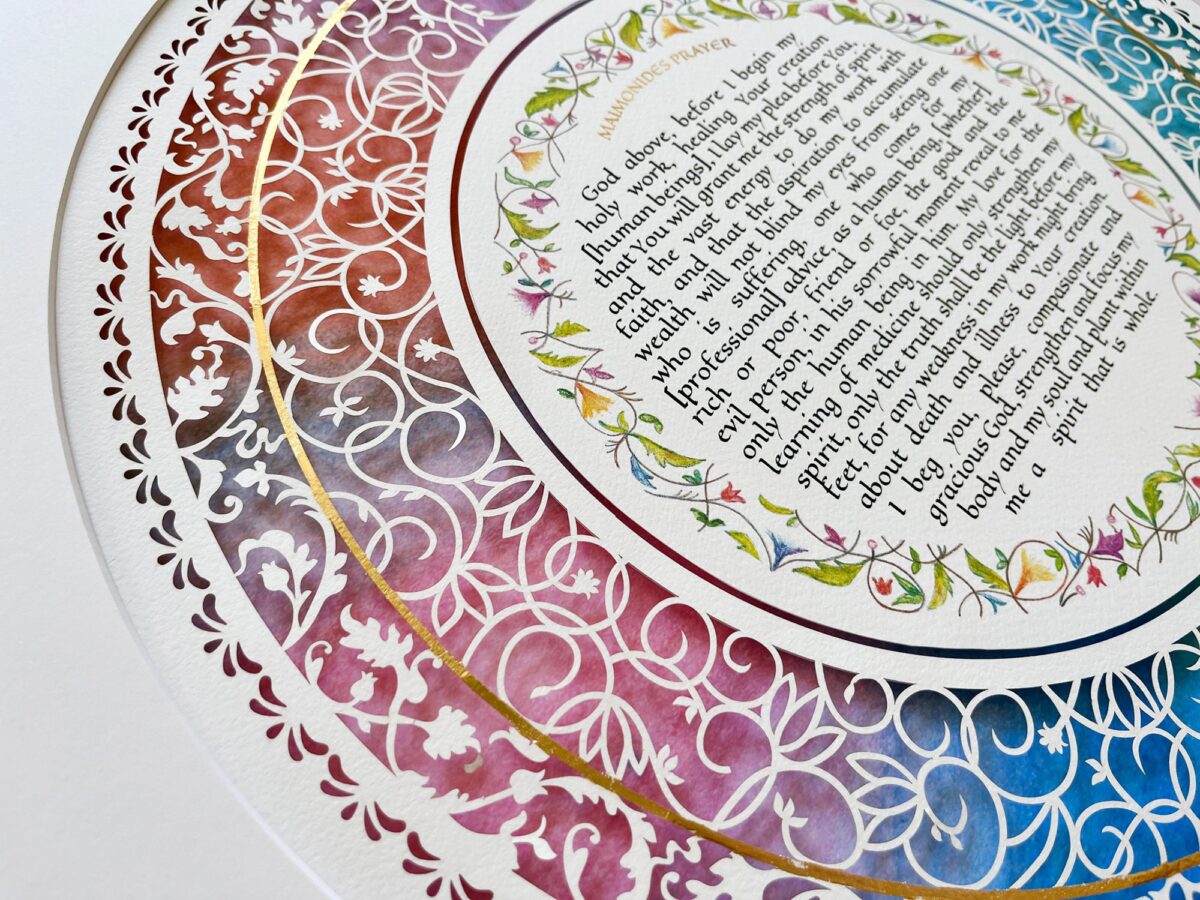 MAIMONIDES PRAYER
God above, before I begin my
holy work, healing Your creation
[human beings], I lay my plea before You,
that You will grant me the strength of spirit
and the vast energy to do my work with
faith, and that the aspiration to accumulate
wealth will not blind my eyes from seeing one
who is suffering, one who comes for my
[professional] advice as a human being, [whether]
rich or poor, friend or foe, the good and the
evil person, in his sorrowful moment reveal to me
only the human being in him. My love for the
learning of medicine should only strengthen my
spirit, only the truth shall be the light before my
feet, for any weakness in my work might bring
about death and illness to Your creation.
I beg you, please, compassionate and
gracious God, strengthen and focus my
body and my soul and plant within
me a spirit that is whole.